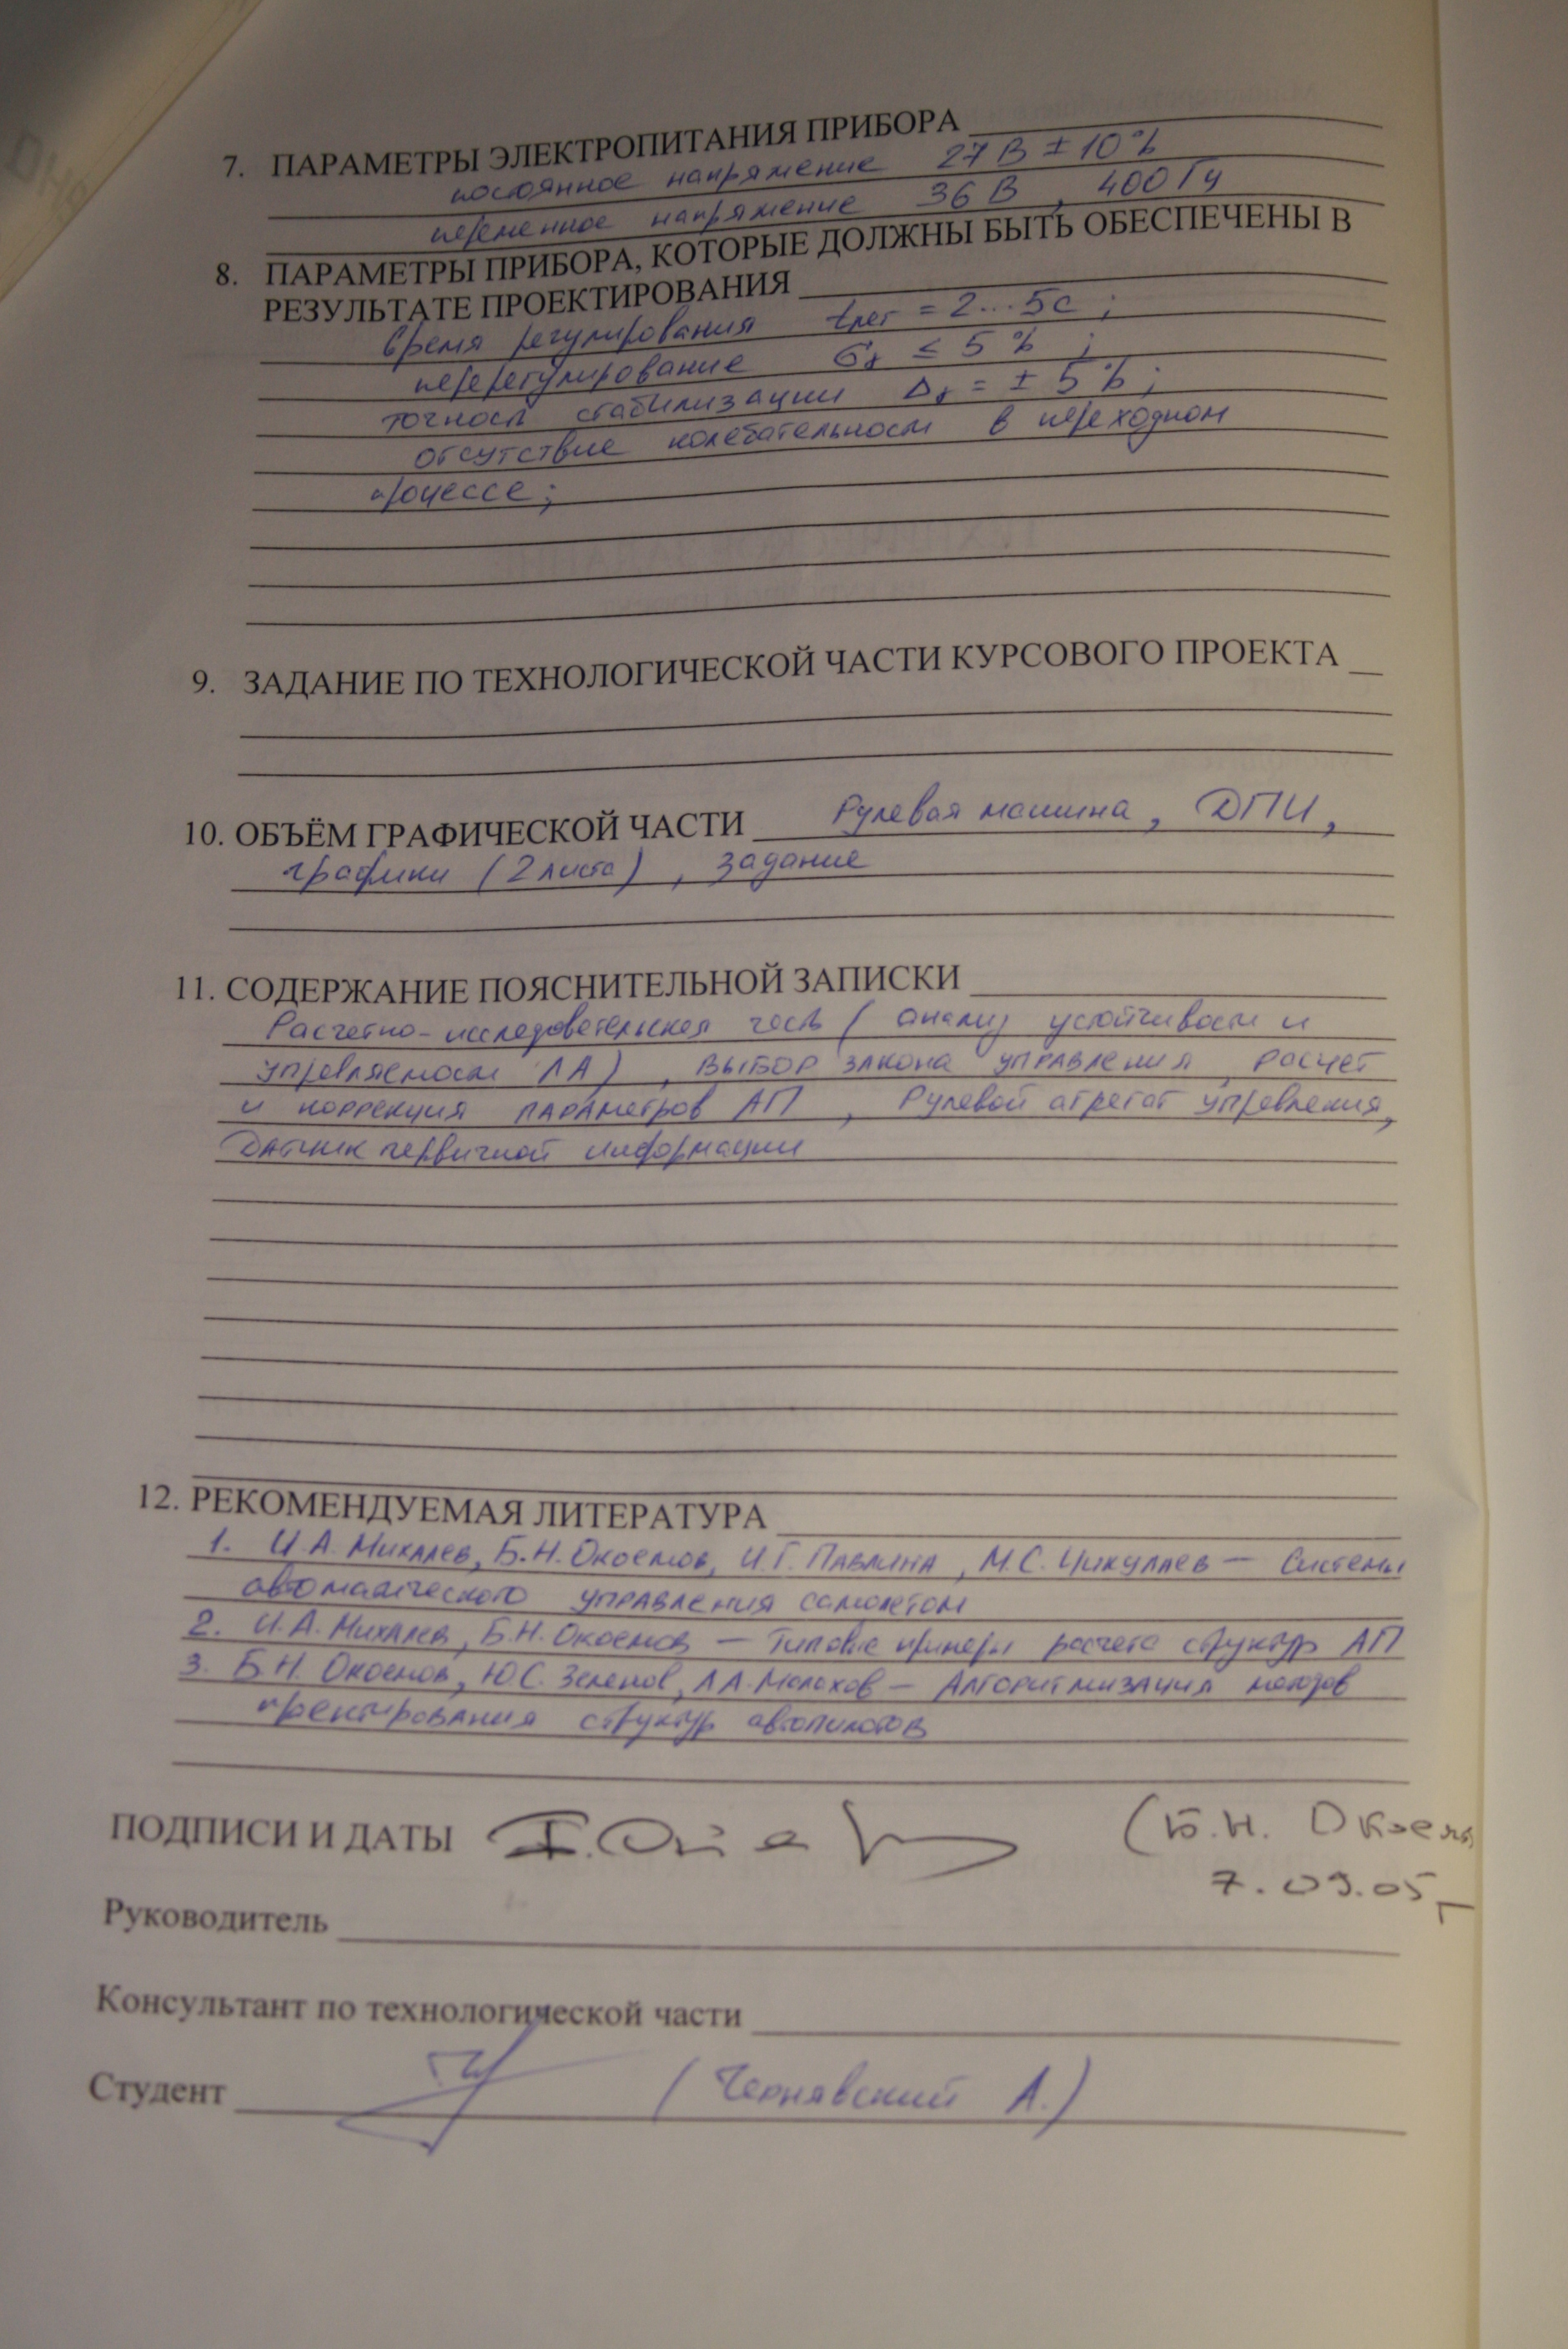 7. ПАРАМЕТРЫ ЭЛЕКТРОПИТАНИЯ ПРИБОРА
постоянное напряжение 27 В ± 10 %
переменное напряжение 36 В , 400 Гц
8. ПАРАМЕТРЫ ПРИБОРА, КОТОРЫЕ ДОЛЖНЫ БЫТЬ ОБЕСПЕЧЕНЫ В
РЕЗУЛЬТАТЕ ПРОЕКТИРОВАНИЯ
время регулирования tрег = 2...5с ;
перерегулирование ≤ 5 % ;
точность стабилизации = ± 5 % ;
отсутствие колебательности в переходном
процессе ;
9. ЗАДАНИЕ ПО ТЕХНОЛОГИЧЕСКОЙ ЧАСТИ КУРСОВОГО ПРОЕКТА
10. ОБЪЁМ ГРАФИЧЕСКОЙ ЧАСТИ Рулевая машина , ДПИ,
графики (2 листа) , задание
11. СОДЕРЖАНИЕ ПОЯСНИТЕЛЬНОЙ ЗАПИСКИ
Расчетно-исследовательская часть ( анализ устойчивости и
управляемости ЛА) , выбор закона управления , расчет
и коррекция параметров АП , Рулевой агрегат управления,
Датчик первичной информации
12. РЕКОМЕНДУЕМАЯ ЛИТЕРАТУРА
1. И.А. Михалев, Б.Н. Окоемов, И.Г. Павлина , М.С. Чикулаев — Системы
автоматического управления самолетом
2. И.А. Михалев, Б.Н. Окоемов — Типовые примеры расчета структур АП
3. Б.Н. Окоемов, Ю.С. Зеленов, Л.А. Малахов — Алгоритмизация методов
проектирования структур автопилотов
ПОДПИСИ И ДАТЫ (Б.Н. Окоем
7.09.05 г
Руководитель
Консультант по технологической части
Студент ( Чернявский А.)